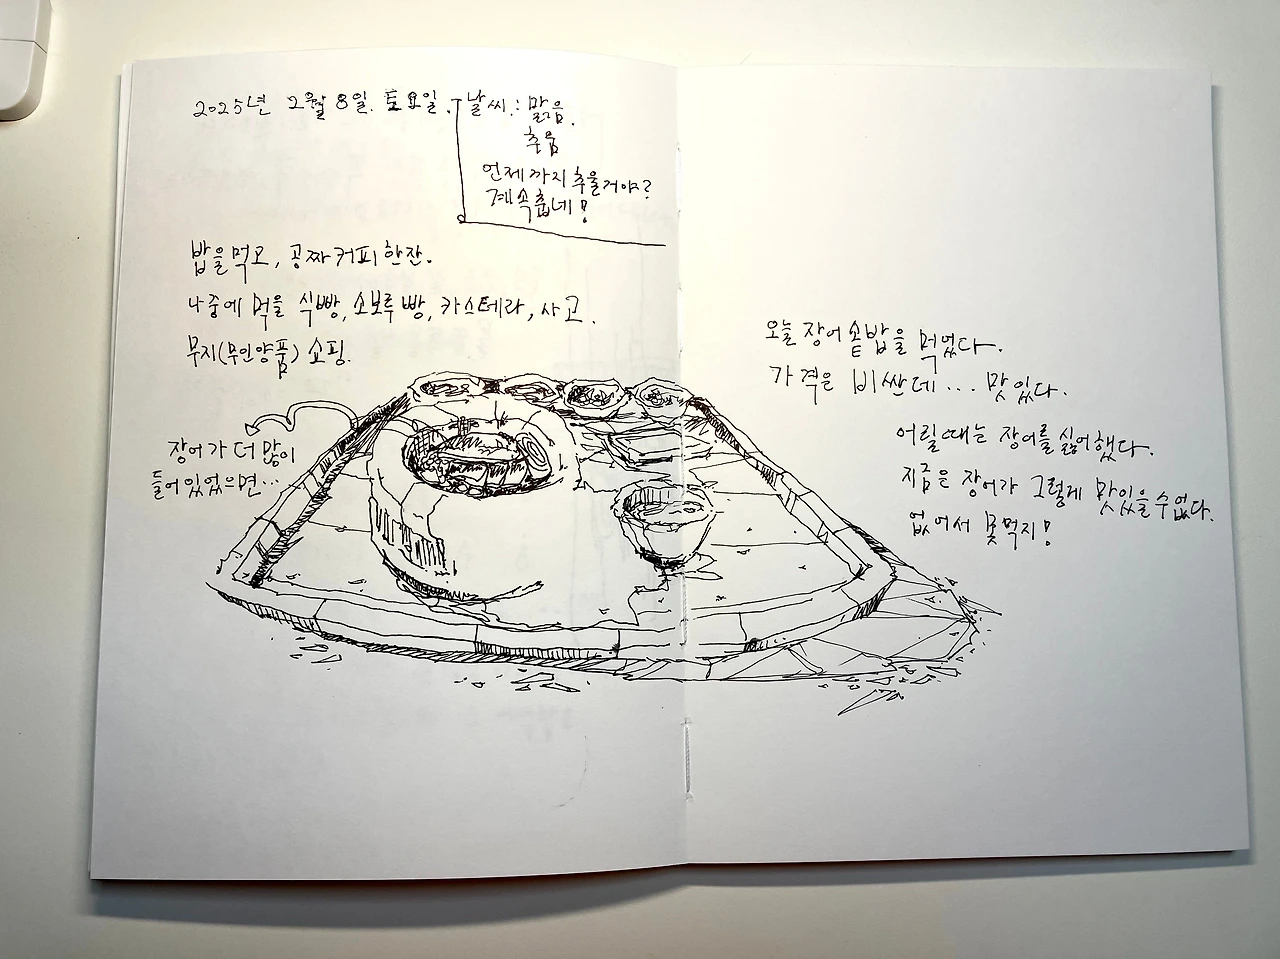 2025년 2월 8일. 토요일.
날씨 : 맑음.
추움
언제까지 추울거야?
계속춥네!
밥을 먹고, 공짜커피 한잔.
나중에 먹을 식빵, 소보루빵, 카스테라, 사고.
무지(무인양품) 쇼핑.
장어가 더 많이
들어 있었으면...
오늘 장어솥밥을 먹었다.
가격은 비싼데... 맛있다.
어릴때는 장어를 싫어했다.
지금은 장어가 그렇게 맛있을수없다.
없어서 못먹지!